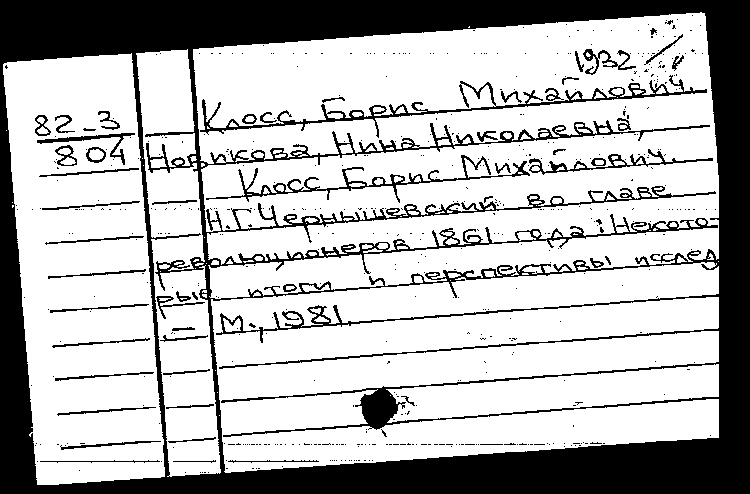 1932
82-3 Клосс, Борис Михайлович.
804 Новикова, Нина Николаевна,
Клосс, Борис Михайлович.
Н.Г. Чернышевский во главе
революционеров 1861 года: Некото-
рые итоги и перспективы исслед
. — М., 1981.